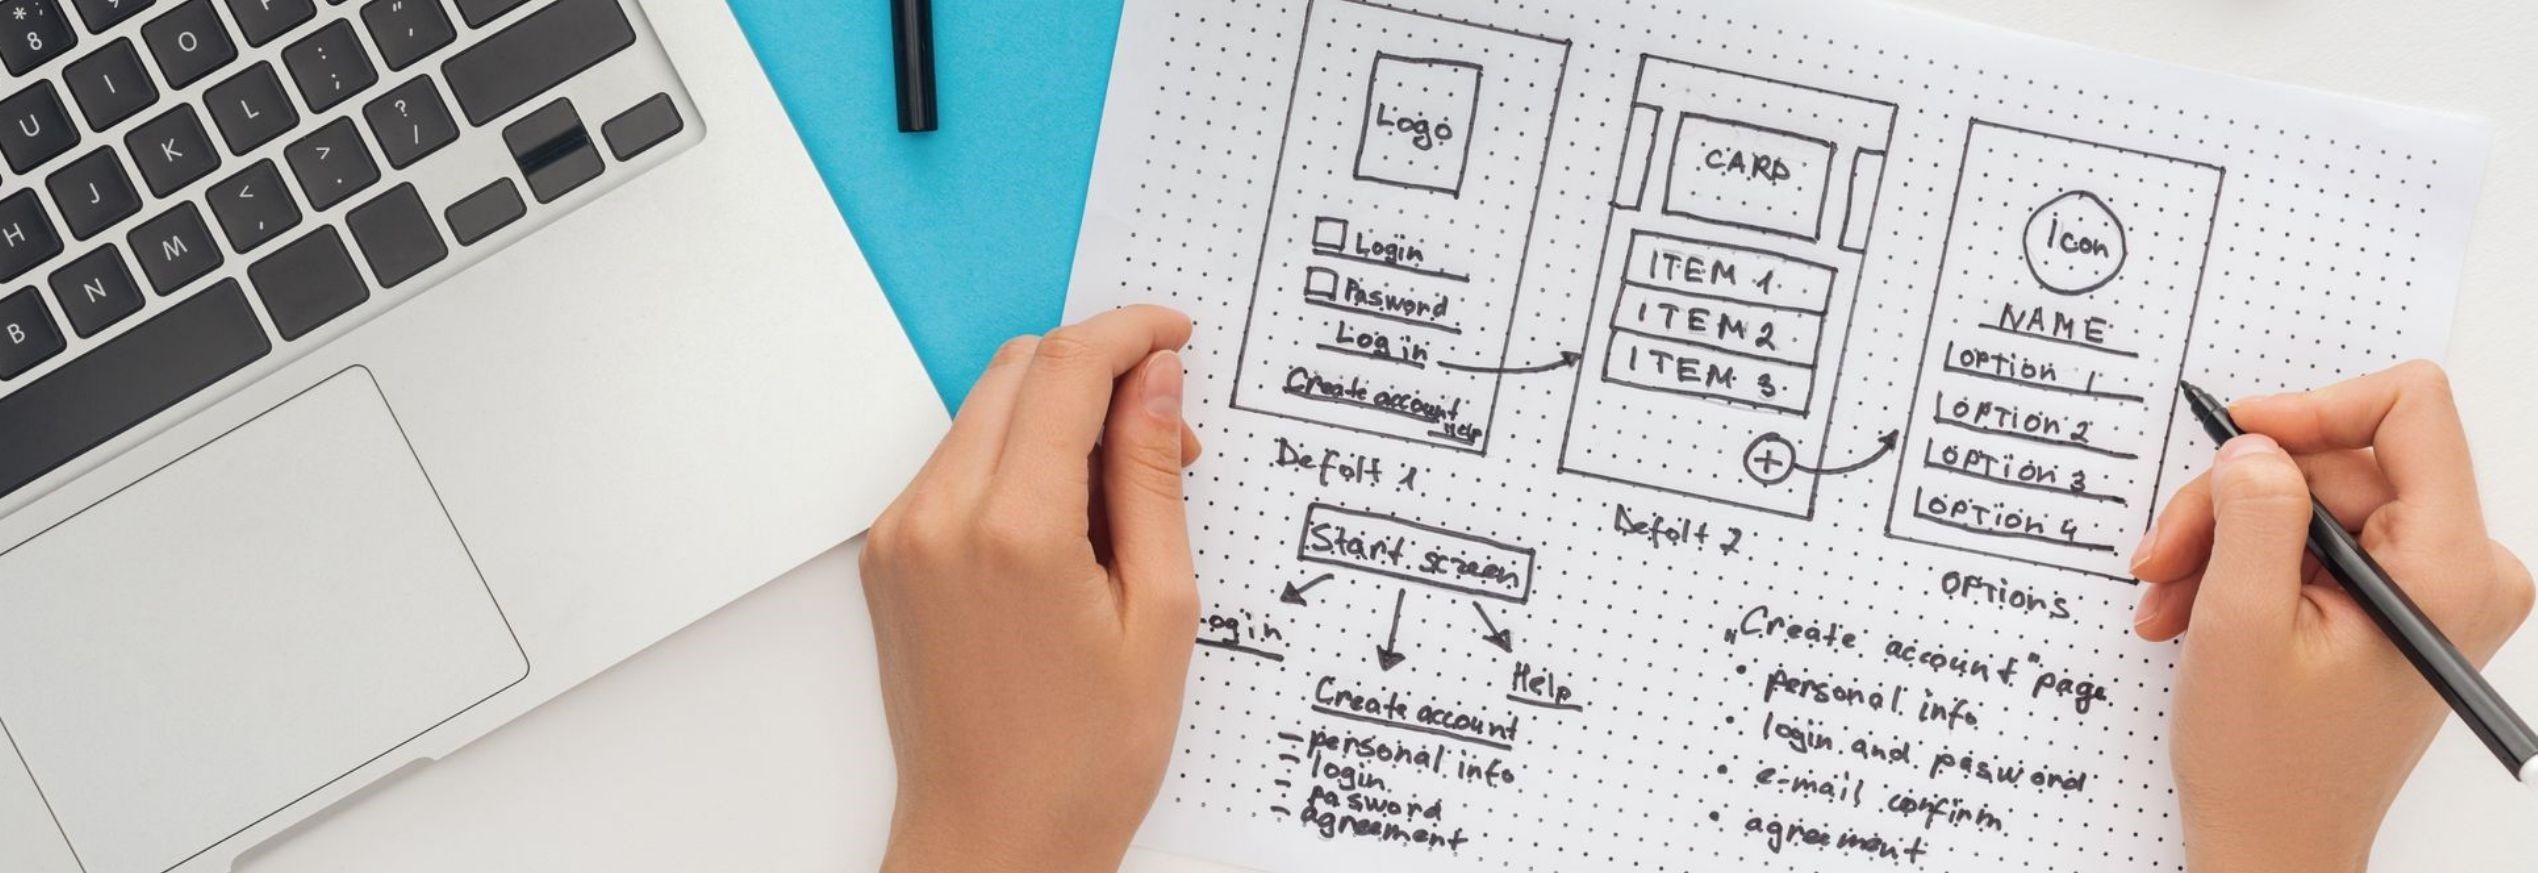 * 8
U
I
O
H
J
K
L
: ;
" '
B
N
M
< ,
> .
? /
Logo
Login
Pasword
Log in
Create account
Help
Defolt 1
CARD
ITEM 1
ITEM 2
ITEM 3
+
Defolt 2
Icon
NAME
OPTION 1
OPTION 2
OPTION 3
OPTION 4
OPTIONS
Start screen
ogin
Create account
- personal info
- login
- pasword
- agreement
Help
„Create account" page
• personal info
• login and pasword
• e-mail confirm
• agreement